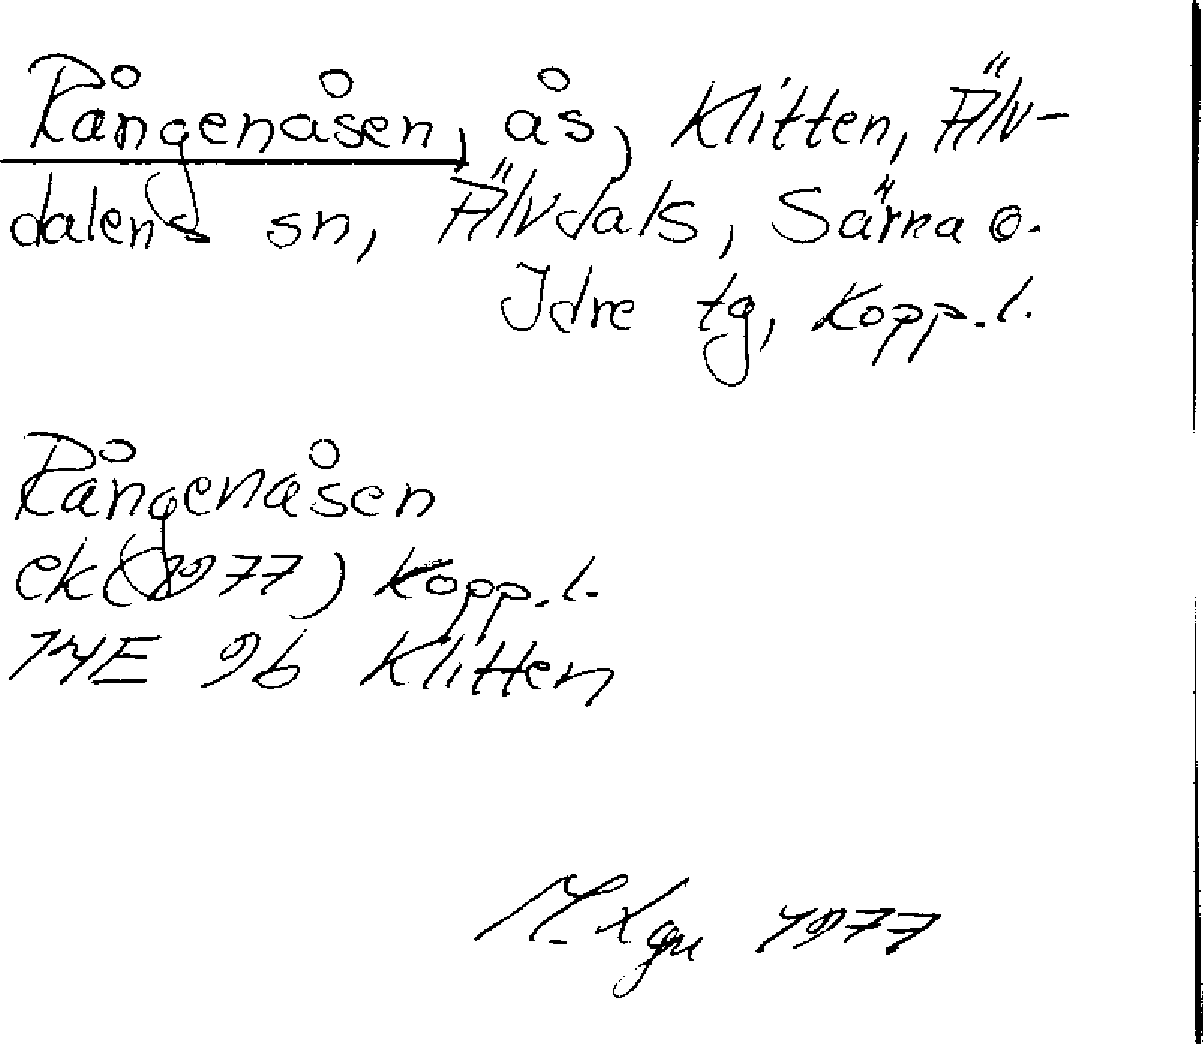 Rångenåsen, ås, Klitten, Älv-
dalens sn, Älvdals, Särna o.
Idre tg, Kopp. l.
Rångenåsen
ek (1977) Kopp. l.
14E 9b Klitten
1977